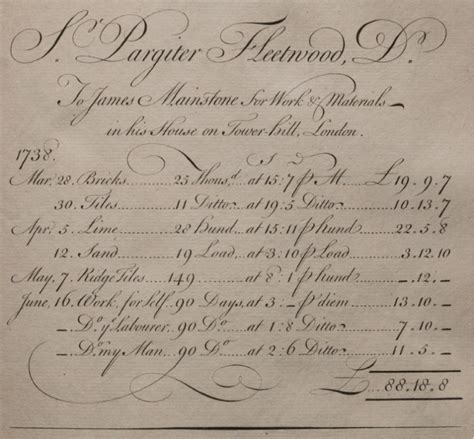 Sr. Pargiter Fleetwood, Dr.
To James Mainstone for Work & Materials
in his House on Tower-hill, London.
1738. s d
Mar. 28. Bricks 25 Thousd. at 15:7 p M. £19.9.7
30. Tiles 11 Ditto at 19:5 Ditto 10.13.7
Apr. 5. Lime 28 Hund. at 15:11 p hund 22.5.8
12. Sand 19 Load at 3:10 p Load 3.12.10
May, 7. Ridge Tiles 149 at 8:1 p hund -.12.-
June, 16. Work, for Self. 90 Days, at 3:- p diem 13.10.-
Do. ye Labourer, 90 Do. at 1:8 Ditto 7.10.-
Do. my Man 90 Do. at 2:6 Ditto 11.5.-
£ 88.18.8